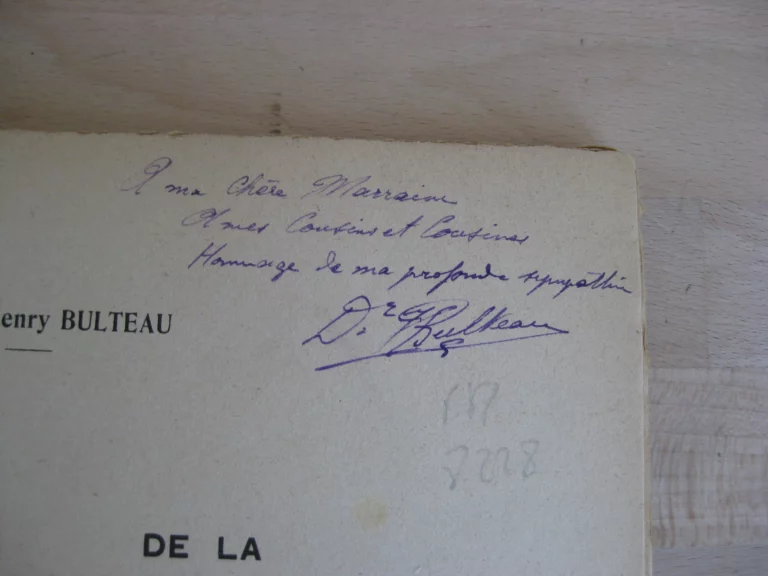 A ma Chère Marraine
A mes Cousins et Cousines
Hommage de ma profonde sympathie
Dr Bulteau
enry BULTEAU
7228
DE LA